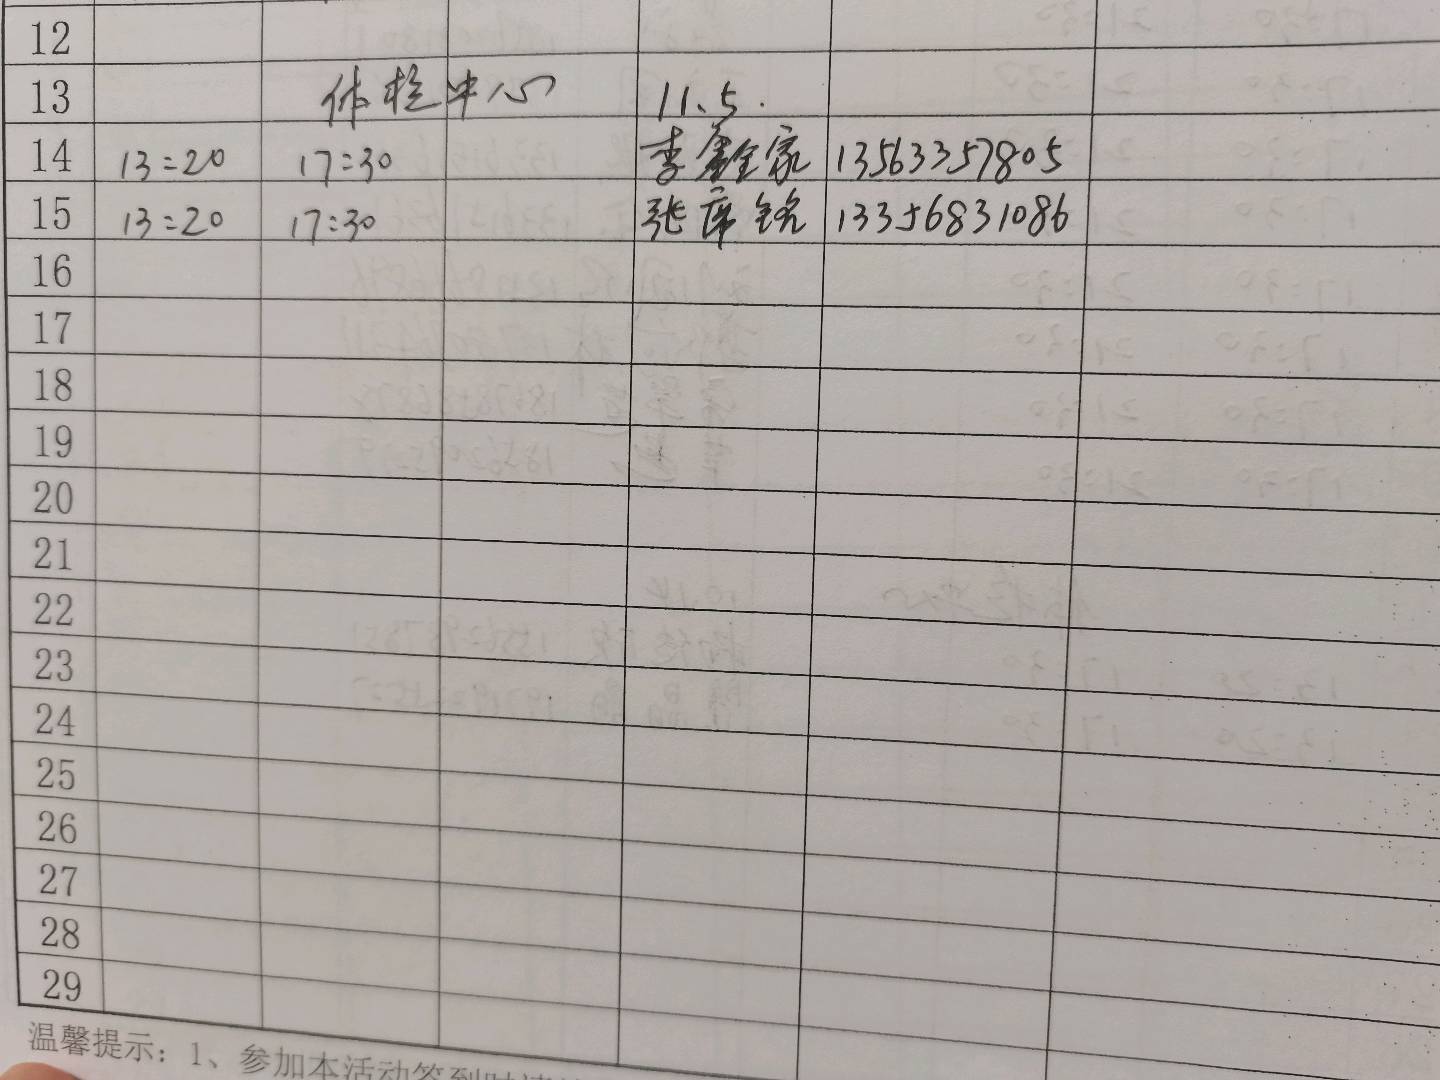 12
13 体检中心 11.5.
14 13:20 17:30 李鑫家 13563357805
15 13:20 17:30 张席铭 13356831086
16
17
18
19
20
21
22
23
24
25
26
27
28
29
温馨提示：1、参加本活动签到时请